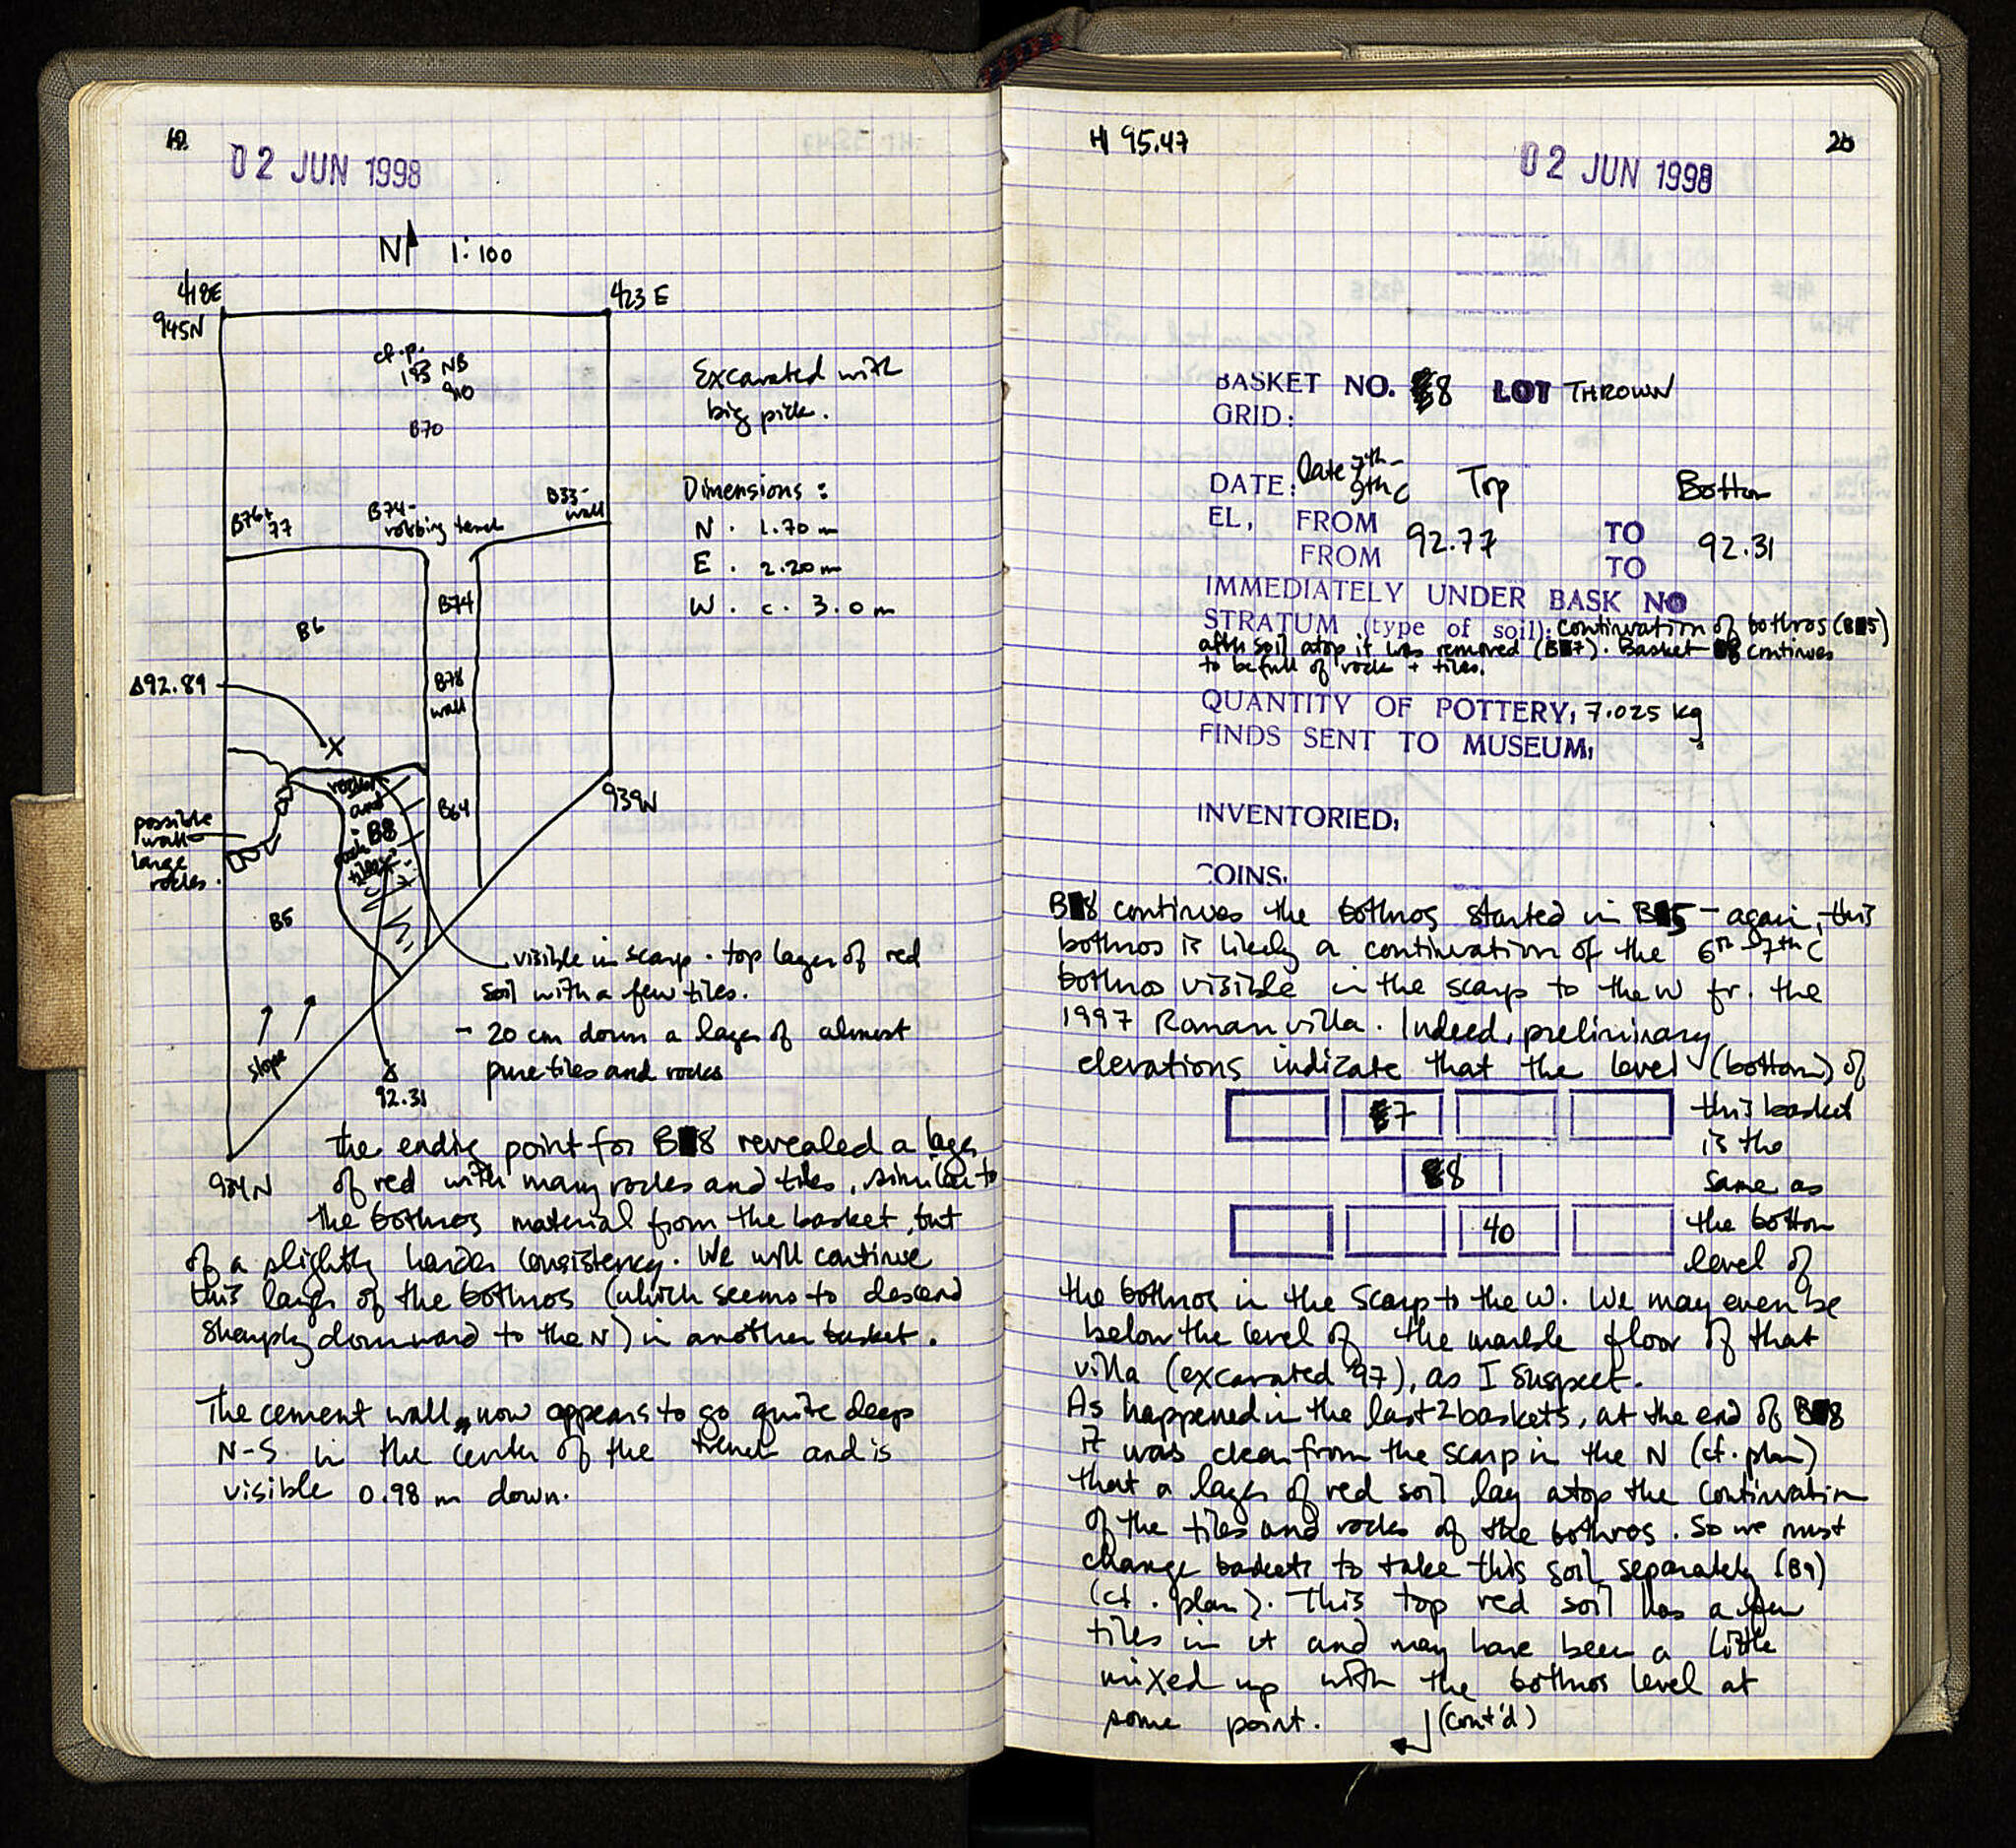 02 JUN 1998
N 1:100
418E
945N
423 E
cf. p.
193 NB
910
B70
Excavated with
big pick.
Dimensions :
N. 1.70 m
E. 2.20 m
W. c. 3.0 m
B76+
77
B74-
robbing trench
B33-
wall
B6
B74
B78
wall
Δ92.89
X
B64
939N
possible
wall-
large
rocks.
rocks
and
B8
tiles
B5
slope
visible in scarp. top layer of red
soil with a few tiles.
- 20 cm down a layer of almost
pure tiles and rocks
Δ
92.31
934N
the ending point for B8 revealed a layer
of red with many rocks and tiles, similar to
the bothros material from the basket, but
of a slightly harder consistency. We will continue
this layer of the bothros (which seems to descend
sharply downward to the N) in another basket.
The cement wall now appears to go quite deep
N-S in the center of the trench and is
visible 0.98 m down.
H 95.47
02 JUN 1998
BASKET NO. 8 LOT THROWN
GRID:
DATE: Date 7th-
9th C
Top Bottom
EL, FROM 92.77 TO 92.31
FROM TO
IMMEDIATELY UNDER BASK NO
STRATUM (type of soil): continuation of bothros (B5)
after soil atop it was removed (B7). Basket 8 continues
to be full of rock + tiles.
QUANTITY OF POTTERY, 7.025 kg
FINDS SENT TO MUSEUM,
INVENTORIED,
COINS,
B8 continues the bothros started in B5 - again, this
bothros is likely a continuation of the 6th-7th C
bothros visible in the scarp to the W fr. the
1997 Roman villa. Indeed, preliminary
elevations indicate that the level (bottom) of
7
this basket
is the
8
same as
40
the bottom
level of
the bothros in the scarp to the W. We may even be
below the level of the marble floor of that
villa (excavated '97), as I suspect.
As happened in the last 2 baskets, at the end of B8
it was clear from the scarp in the N (cf. plan)
that a layer of red soil lay atop the continuation
of the tiles and rocks of the bothros. So we must
change baskets to take this soil separately (B9)
(cf. plan). This top red soil has a few
tiles in it and may have been a little
mixed up with the bothros level at
some point. (cont'd)